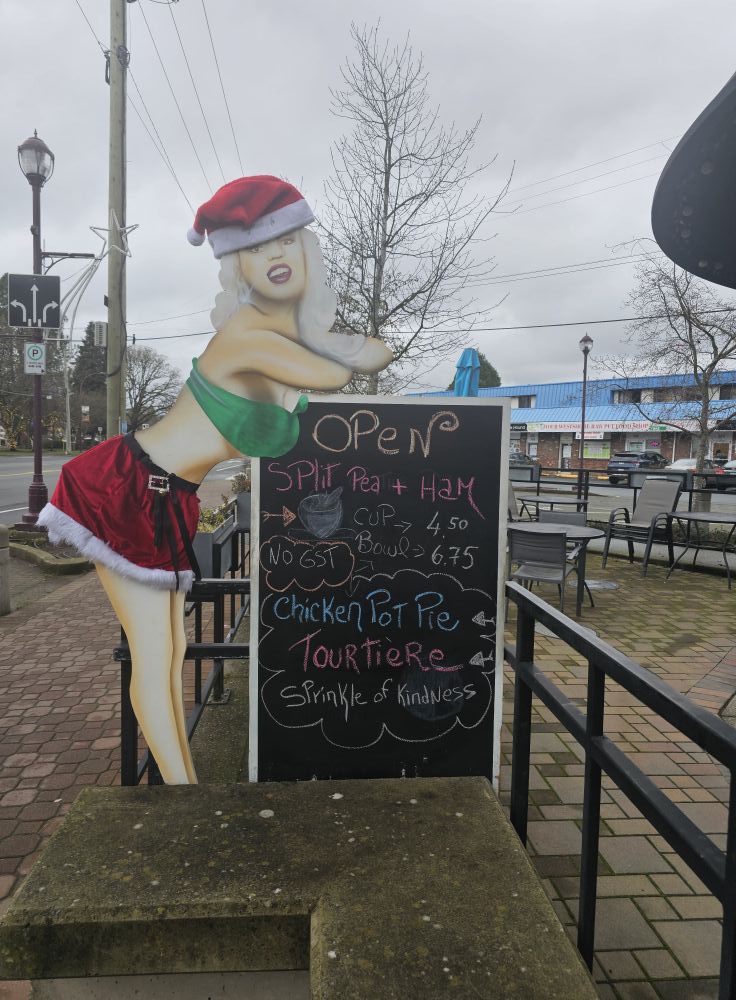 OPeN
SPLiT Pea + HaM
CUP → 4.50
Bowl → 6.75
NO GST
Chicken Pot Pie
TOURTieRe
Sprinkle of KindNess
P